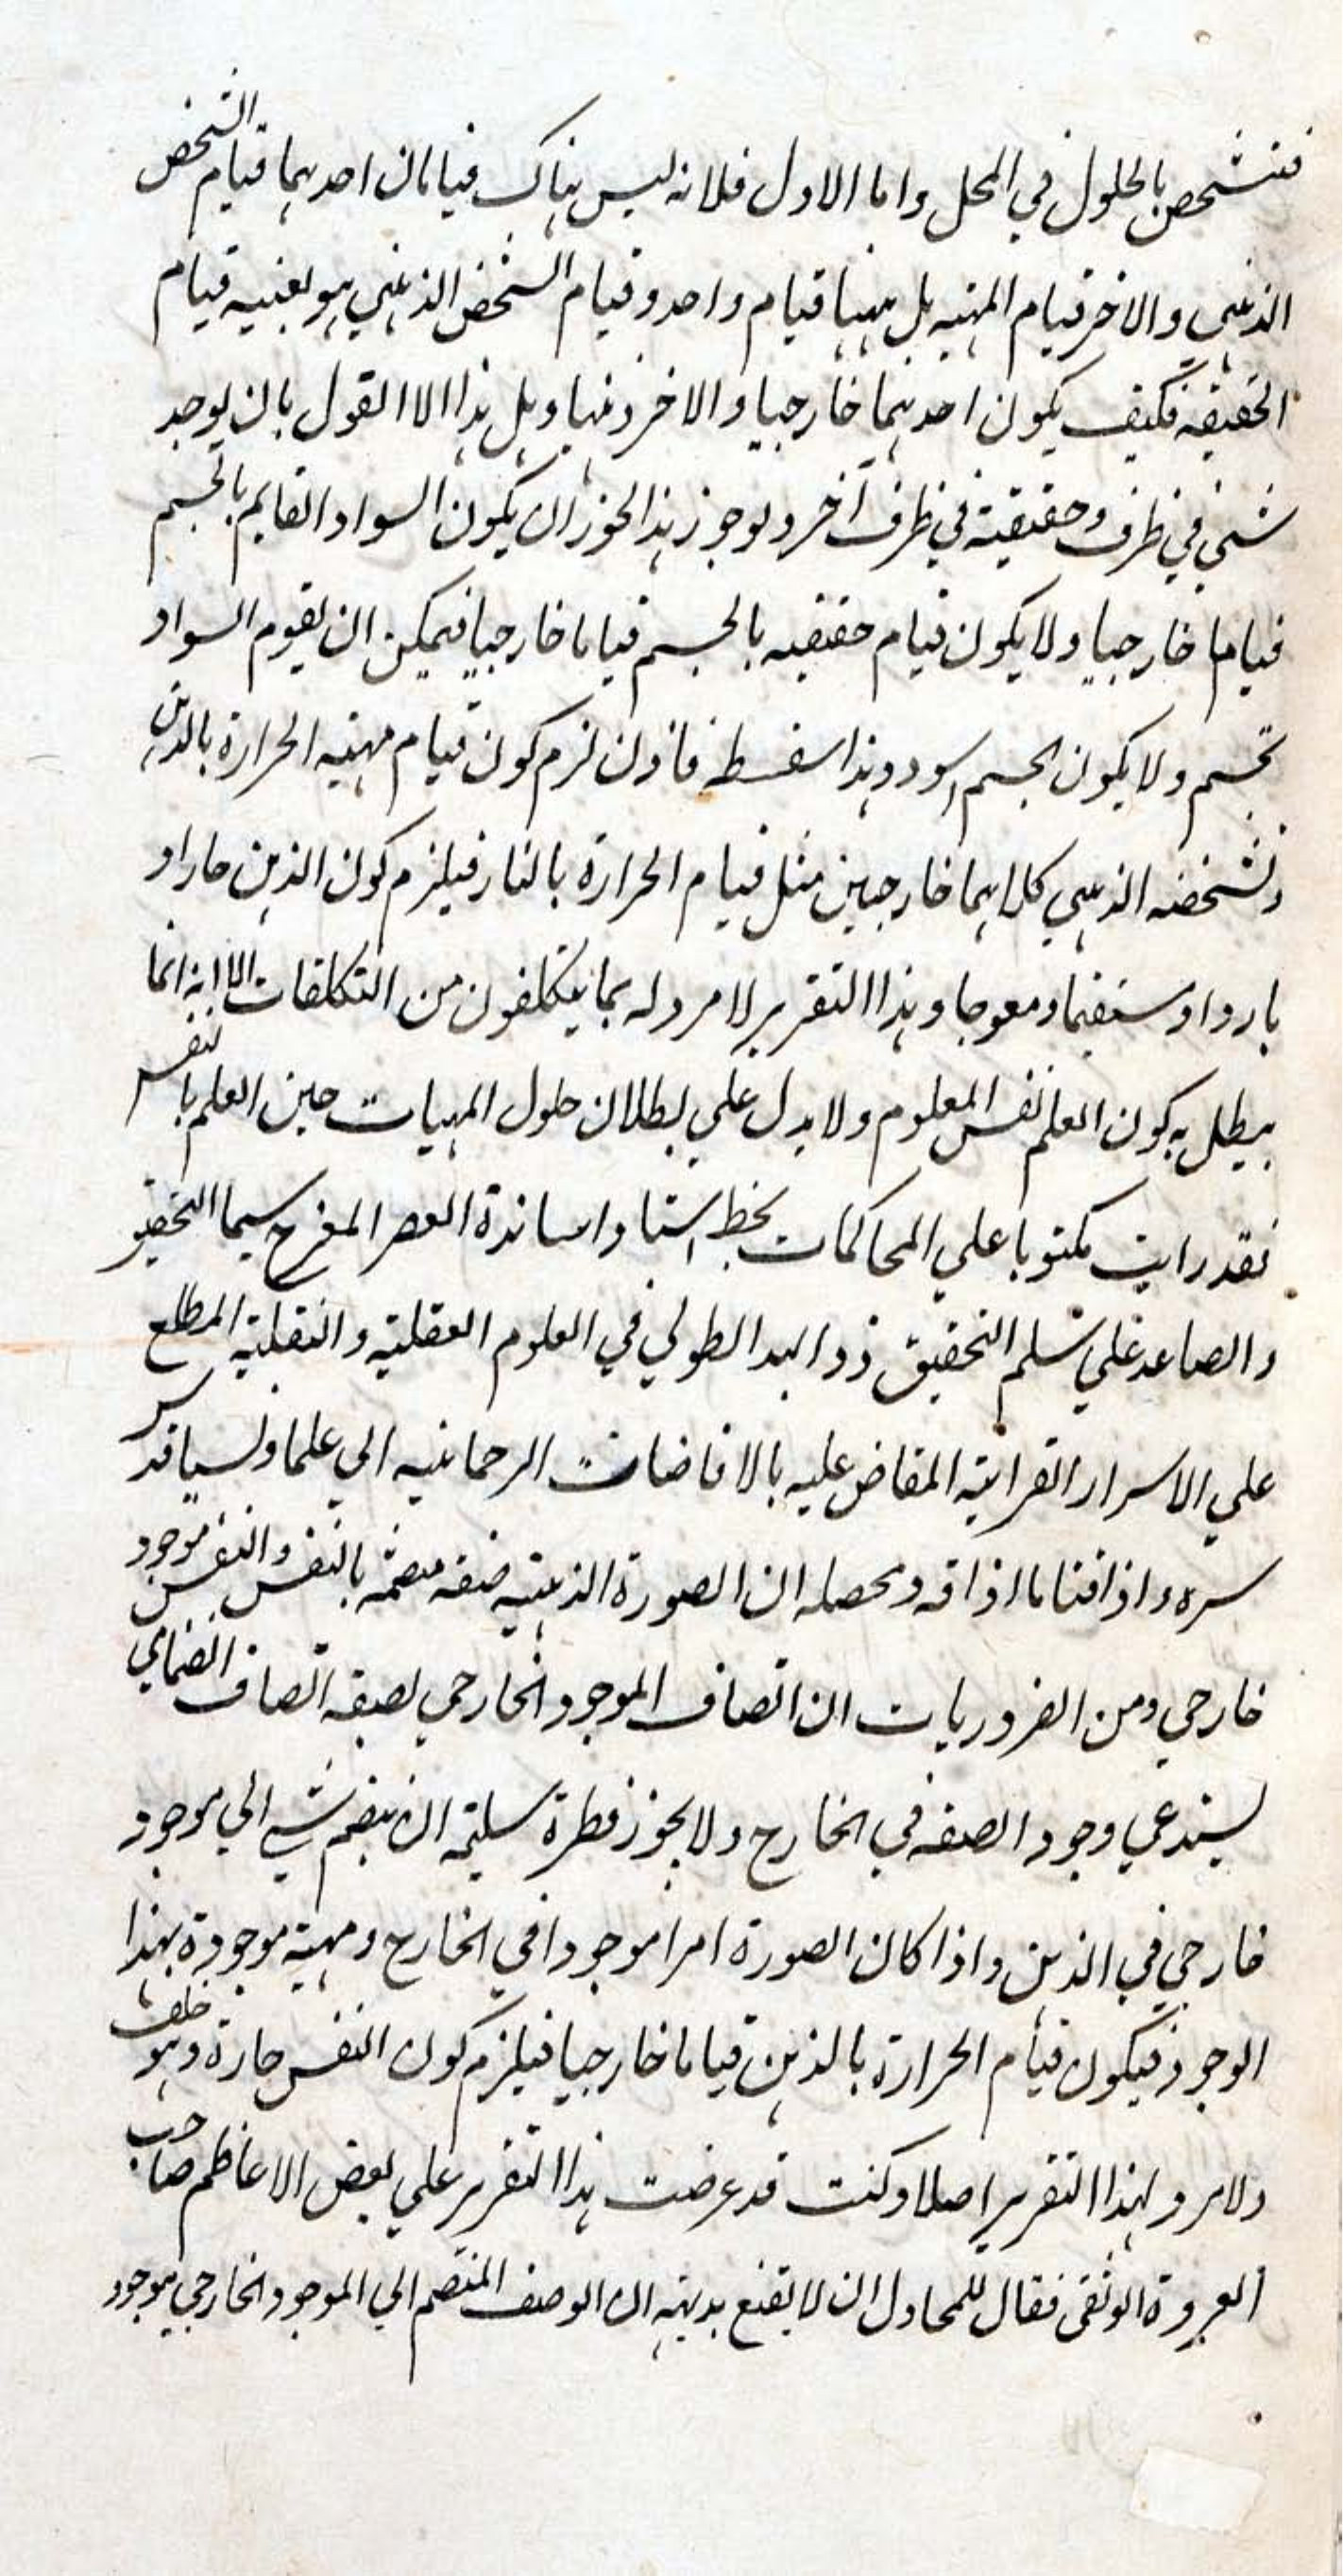 فتشخص بالحلول في المحل واما الاول فلانه ليس هناك قيامان احدهما قيام الشخص
الذهني والاخر قيام المهيه بل ههنا قيام واحد وقيام الشخص الذهني هو بعينه قيام
الحقيقه فكيف يكون احدهما خارجيا والاخر ذهنيا وهل هذا الا القول بان يوجد
شيء في ظرف وحقيقته في ظرف آخر ولو جوز هذا لجوز ان يكون السواد القايم بالجسم
قياما خارجيا ولا يكون قيام حقيقيه بالجسم قياما خارجيا فيمكن ان يقوم السواد
بجسم ولا يكون الجسم اسود وهذا سفسطه فاذن لزم كون قيام مهيه الحرارة بالذهن
وتشخصه الذهني كلاهما خارجيين مثل قيام الحرارة بالنار فيلزم كون الذهن حارا و
باردا ومستقيما ومعوجا وهذا التقرير لا مرد له بما يتكلفون من التكلفات الا انه انما
يبطل به كون العلم نفس المعلوم ولا يدل علي بطلان حلول المهيات حين العلم بالنفس
فقد رايت مكتوبا علي المحاكمات بخط استاد اساتذة العصر
والصاعد علي سلم التحقيق ذو اليد الطولي في العلوم العقلية والنقلية المطلع
علي الاسرار القرانية المفاض عليه بالافاضات الرحمانيه الي علما ولسيا قدس
سره واذاقنا ما اذاقه ومحصله ان الصورة الذهنية صفه منضمه بالنفس والنفس موجود
خارجي ومن الضروريات ان اتصاف الموجود الخارجي بصفه اتصاف انضمامي
يستدعي وجود الصفه في الخارج ولا يجوز فطرة سليمه ان ينضم شي الي موجود
خارجي في الذهن واذا كان الصورة امرا موجودا في الخارج ومهية موجودة بهذا
الوجود فيكون قيام الحرارة بالذهن قياما خارجيا فيلزم كون النفس حارة وهو خلف
ولا مرد لهذا التقرير اصلا وكنت قد عرضت هذا التقرير علي بعض الاعاظم صاحب
العروة الوثقى فقال للمجادل ان لا يقنع بديهة ان الوصف المنضم الي الموجود الخارجي موجود